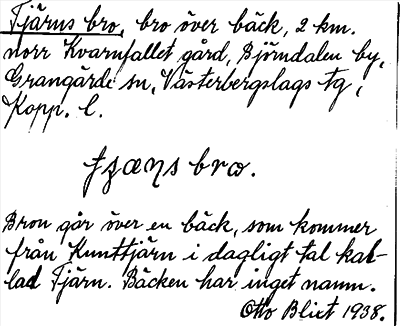 Tjärns bro, bro över bäck, 2 km.
norr Kvarnfallet gård, Björndalen by,
Grangärde sn, Västerbergslags tg,
Kopp. l.
tjæns bro.
Bron går över en bäck, som kommer
från Kunttjärn i dagligt tal kal-
lad Tjärn. Bäcken har inget namn.
Otto Blixt 1938.